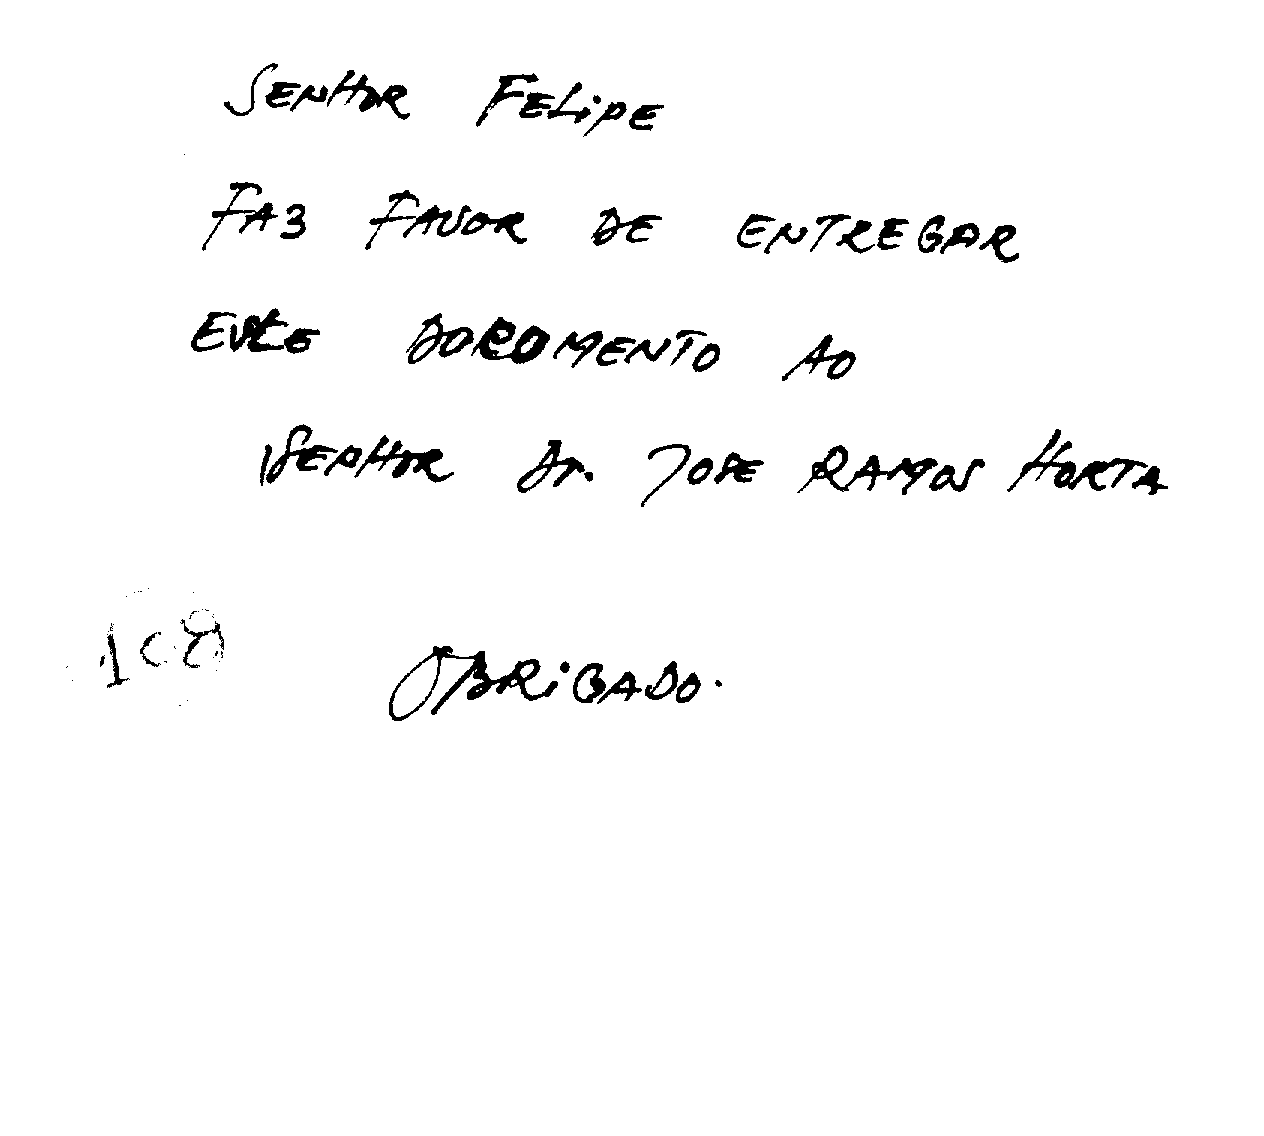 SENHOR FELIPE
FAZ FAVOR DE ENTREGAR
ESTE DOCOMENTO AO
SENHOR Dr. JOSE RAMOS HORTA
OBRIGADO.